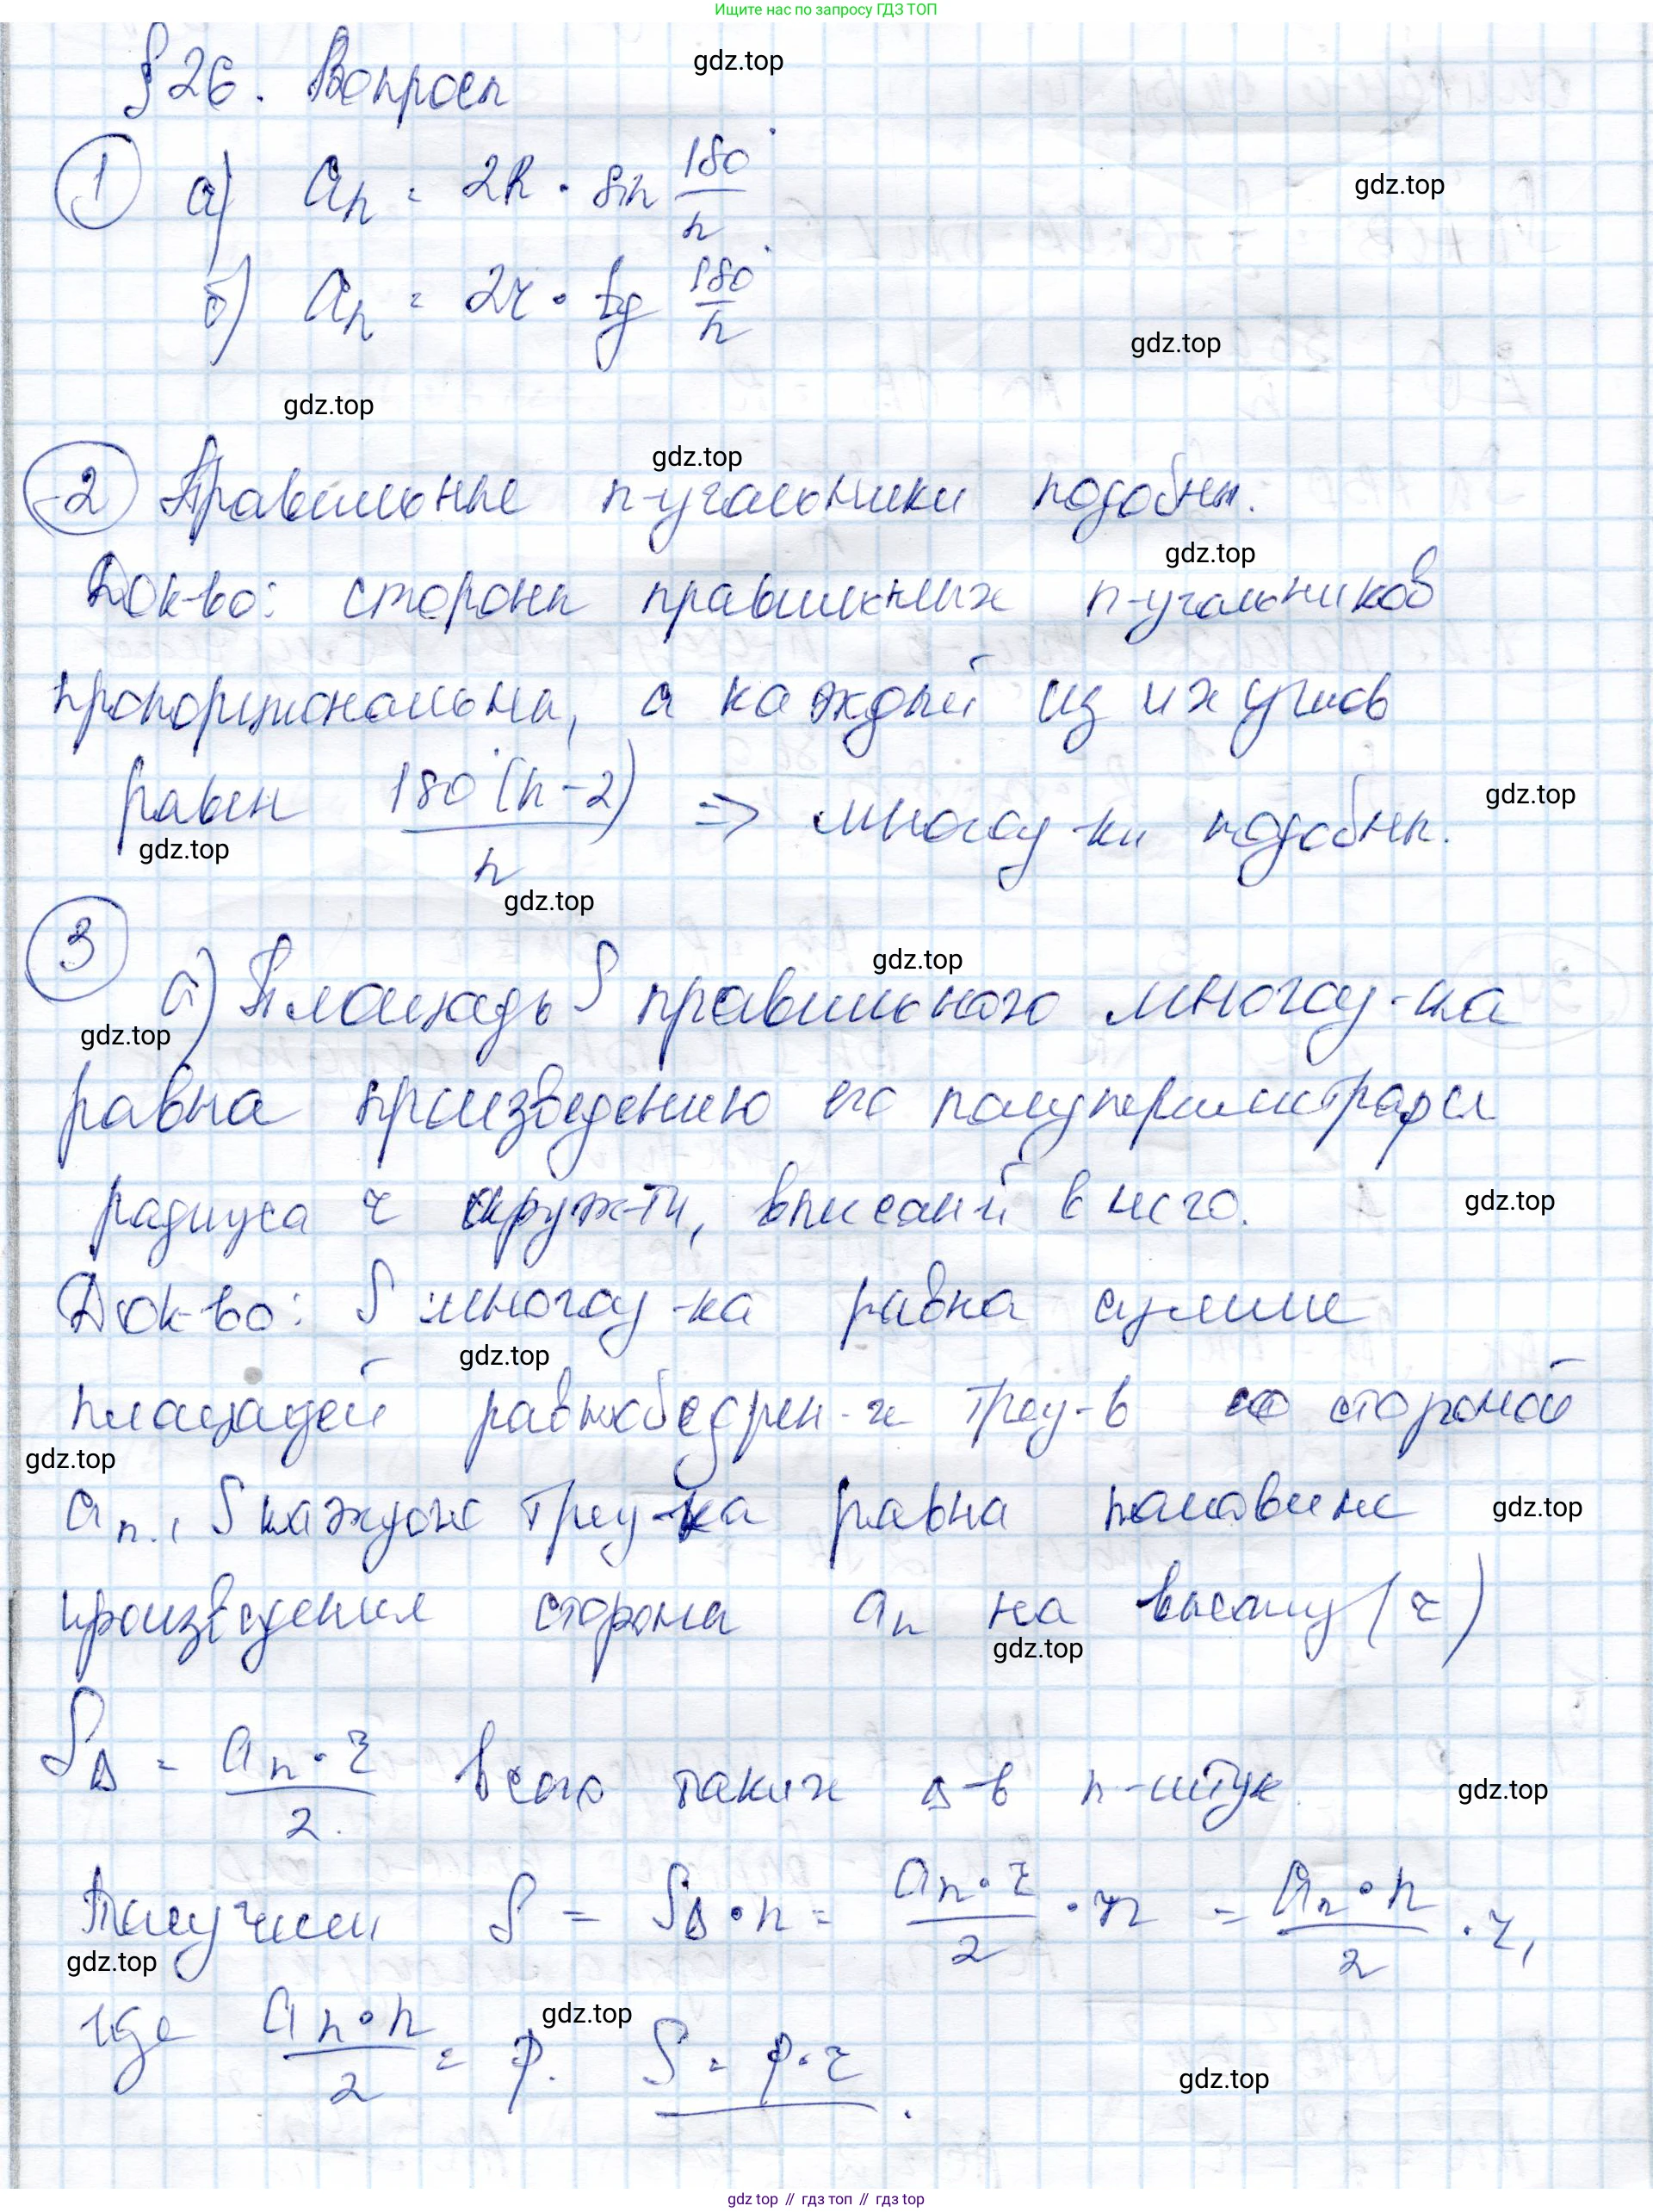 Ищите нас по запросу ГДЗ ТОП
§ 26. Вопросы
gdz.top
1 а) aₙ = 2R · sin 180°/n
gdz.top
б) aₙ = 2r · tg 180°/n
gdz.top
gdz.top
gdz.top
2 Правильные n-угольники подобны.
gdz.top
Док-во: стороны правильных n-угольников
пропорциональны, а каждый из их углов
равен 180°(n-2)/n => многоу-ки подобны.
gdz.top
gdz.top
gdz.top
3
а) Площадь S правильного многоу-ка
gdz.top
gdz.top
равна произведению его полупериметра
радиуса r окруж-ти, вписаной в него.
gdz.top
Док-во: S многоу-ка равна сумме
gdz.top
площадей равнобедрен-х треу-в со стороной
gdz.top
aₙ., S каждого треу-ка равна половине
gdz.top
произведения стороны aₙ на высоту (r)
gdz.top
S∆ = aₙ · r/2. Всего таких ∆-в n-штук.
gdz.top
Получим S = S∆ · n = aₙ · r/2 · n = aₙ · n/2 · r,
gdz.top
где aₙ · n/2 = p. S = p · r.
gdz.top
gdz.top
gdz.top // гдз топ // гдз top